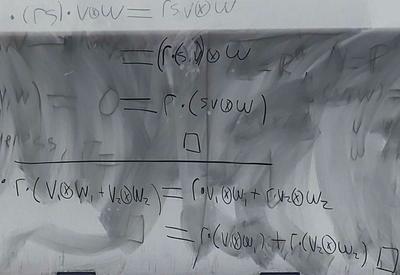 • (rs)·v⊗w = rsv⊗w
=(r·(s.v)⊗w
= r·(sv⊗w)
□
• r·(v₁⊗w₁ + v₂⊗w₂) = r·v₁⊗w₁ + r·v₂⊗w₂
= r·(v₁⊗w₁) + r·(v₂⊗w₂) □